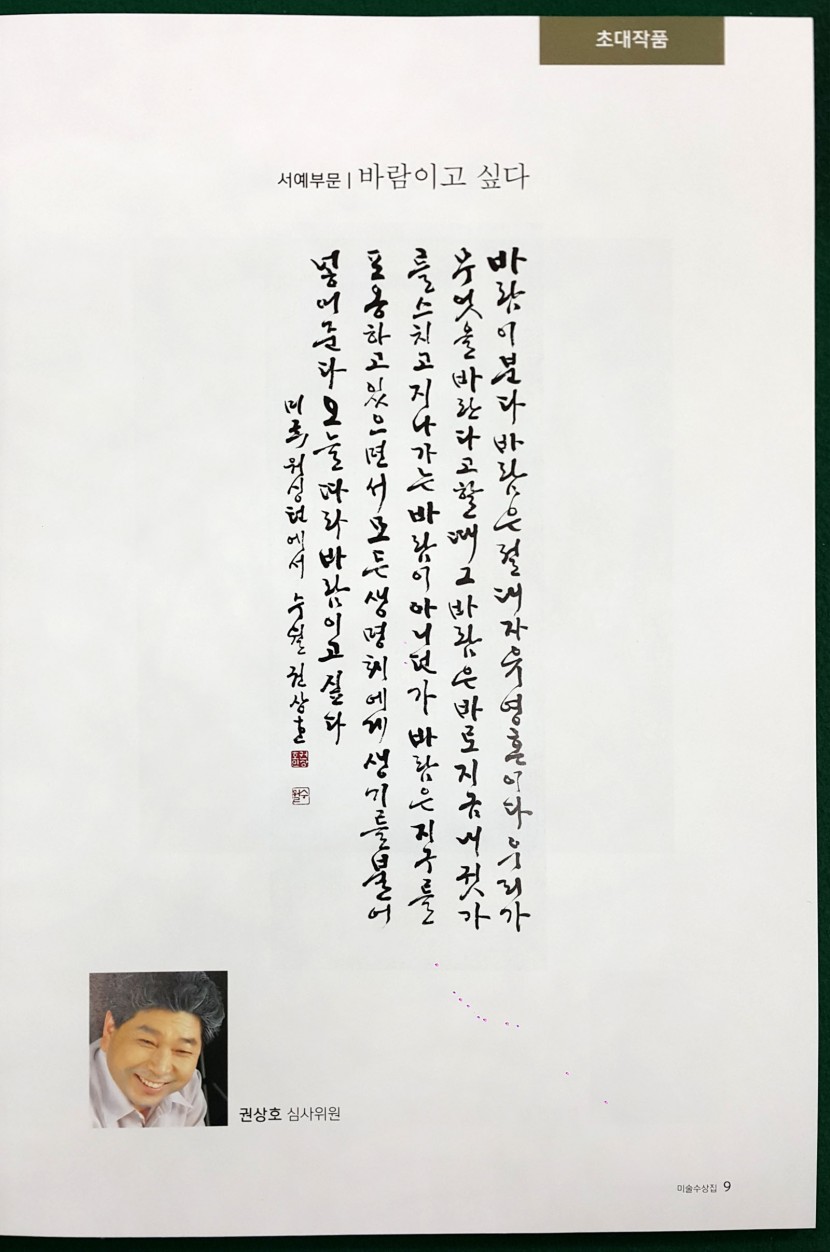 초대작품
서예부문 | 바람이고 싶다
바람이분다바람은절대자유영혼이다우리가
무엇을바란다고할때그바람은바로지금내귓가
를스치고지나가는바람이아니던가바람은지구를
포옹하고있으면서모든생명체에게생기를불어
넣어준다오늘따라바람이고싶다
미국워싱턴에서 수월 권상호
권상호 심사위원
미술수상집 9